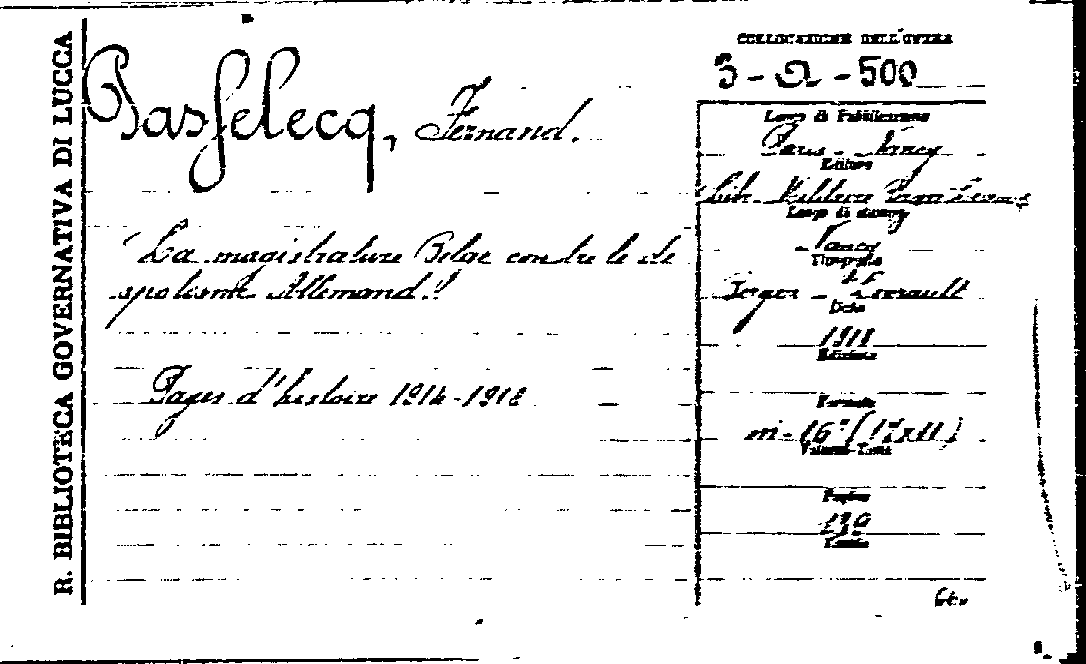 R. BIBLIOTECA GOVERNATIVA DI LUCCA
COLLOCAZIONE DELL'OPERA
3 - Q - 500
Passelecq, Fernand.
"La magistrature Belge contre le de
spotisme Allemand."
Pages d'histoire 1914-1918
Luogo di Pubblicazione
Paris - Nancy
Editore
Lib. Militare
Luogo di stampa
Nancy
Tipografia
Berger - Levrault
Data
1918
Edizione
Formato
in-16° (17x11)
Volume-Tomo
Pagine
139